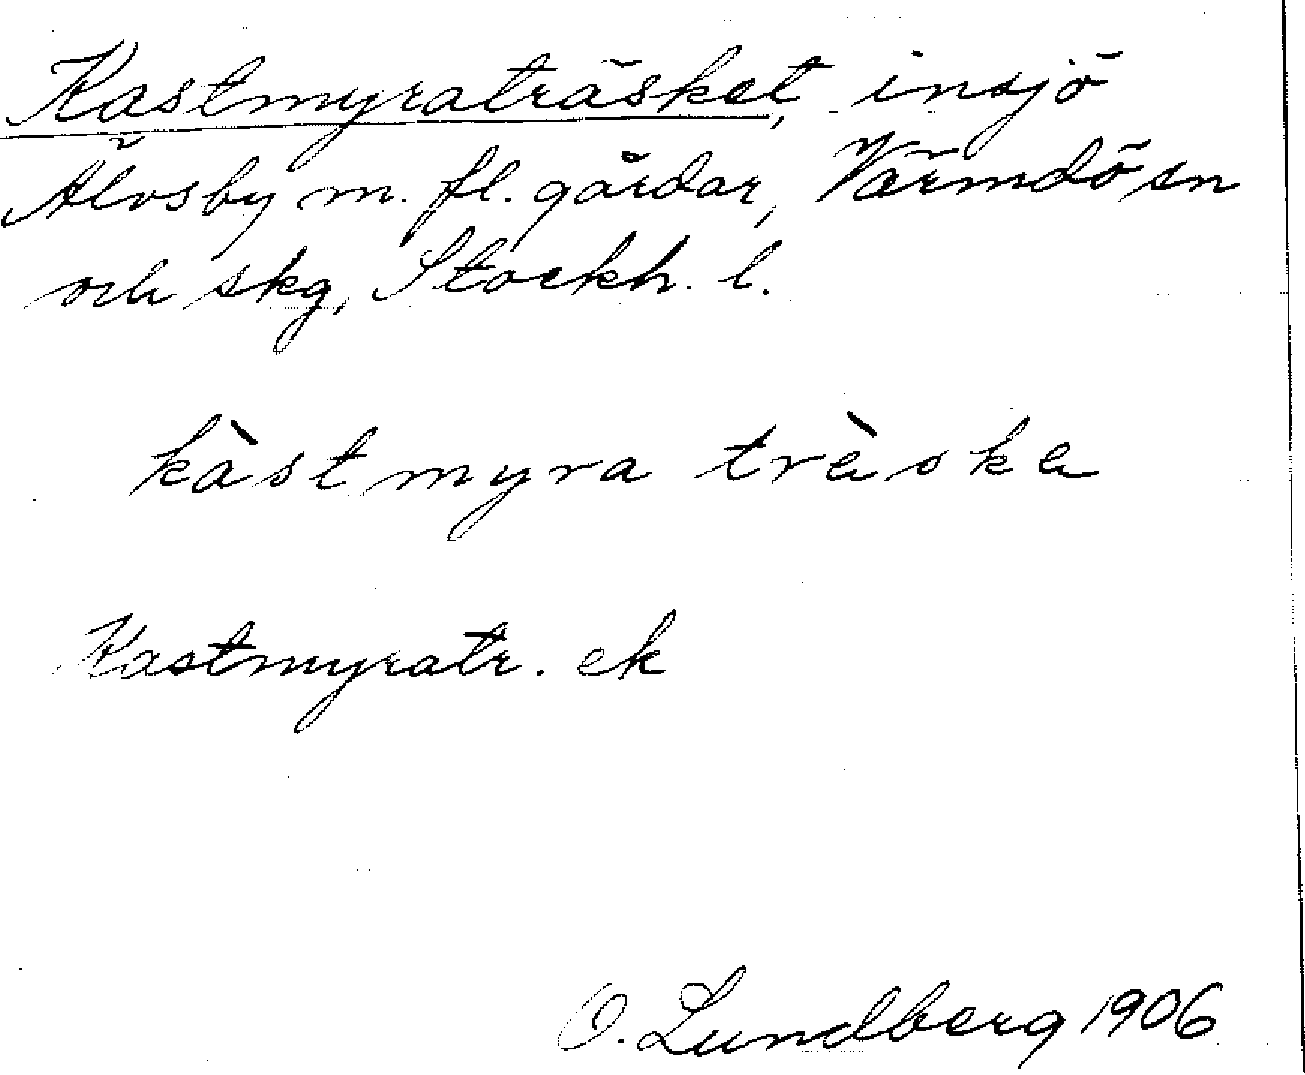 Kastmyraträsket, insjö
Älvsby m. fl. gårdar, Värmdö sn
och skg, Stockh. l.
kàstmyra trèske
Kastmyratr. ek
O. Lundberg 1906